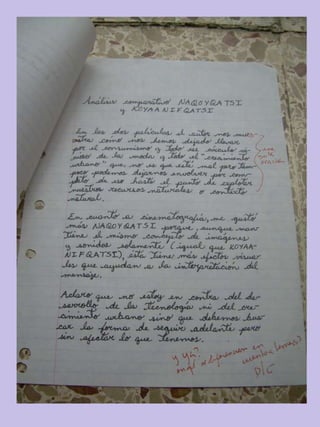 Análisis comparativo NAQOYQATSI
y KOYAANIFQATSI
En las dos películas el autor nos mues-
stra como nos hemos dejado llevar
por el consumismo y todo es
de la moda y todo el "crecimiento
urbano" que no es que esté mal pero tam-
poco podemos dejarnos envolver por com-
pleto de eso hasta el punto de explotar
nuestros recursos naturales o contexto
natural.
una
sola
oración
En cuanto a cinematografía, me gustó
más NAQOYQATSI porque, aunque man-
tiene el mismo contexto de imágenes
y sonidos solamente (igual que KOYAA-
NIFQATSI), ésta tiene más efectos visua-
les que ayudan a la interpretación del
mensaje.
Aclaro que no estoy en contra del de-
serrollo de la tecnología ni del cre-
cimiento urbano sino que debemos bus-
car la forma de seguir adelante pero
sin afectar lo que tenemos.
y ya?
en
D/C